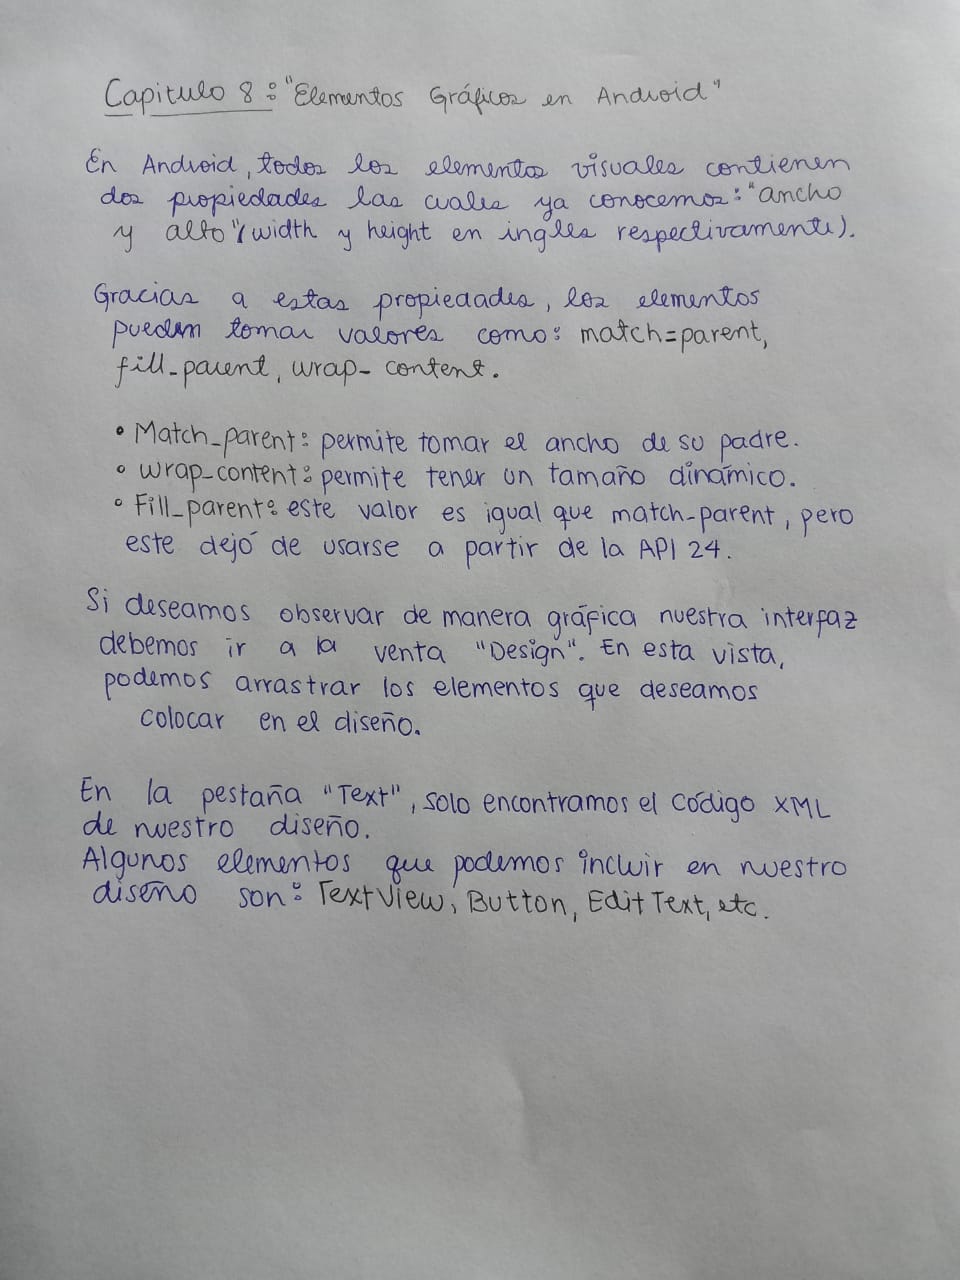 Capitulo 8: "Elementos Gráficos en Android"
En Android, todos los elementos visuales contienen
dos propiedades las cuales ya conocemos: "ancho
y alto" (width y height en ingles respectivamente).
Gracias a estas propiedades, los elementos
pueden tomar valores como: match=parent,
fill_parent, wrap_content.
• Match_parent: permite tomar el ancho de su padre.
• wrap_content: permite tener un tamaño dinámico.
• Fill_parent: este valor es igual que match_parent, pero
este dejó de usarse a partir de la API 24.
Si deseamos observar de manera gráfica nuestra interfaz
debemos ir a la venta "Design". En esta vista,
podemos arrastrar los elementos que deseamos
colocar en el diseño.
En la pestaña "Text", solo encontramos el código XML
de nuestro diseño.
Algunos elementos que podemos incluir en nuestro
diseño son: TextView, Button, Edit Text, etc.